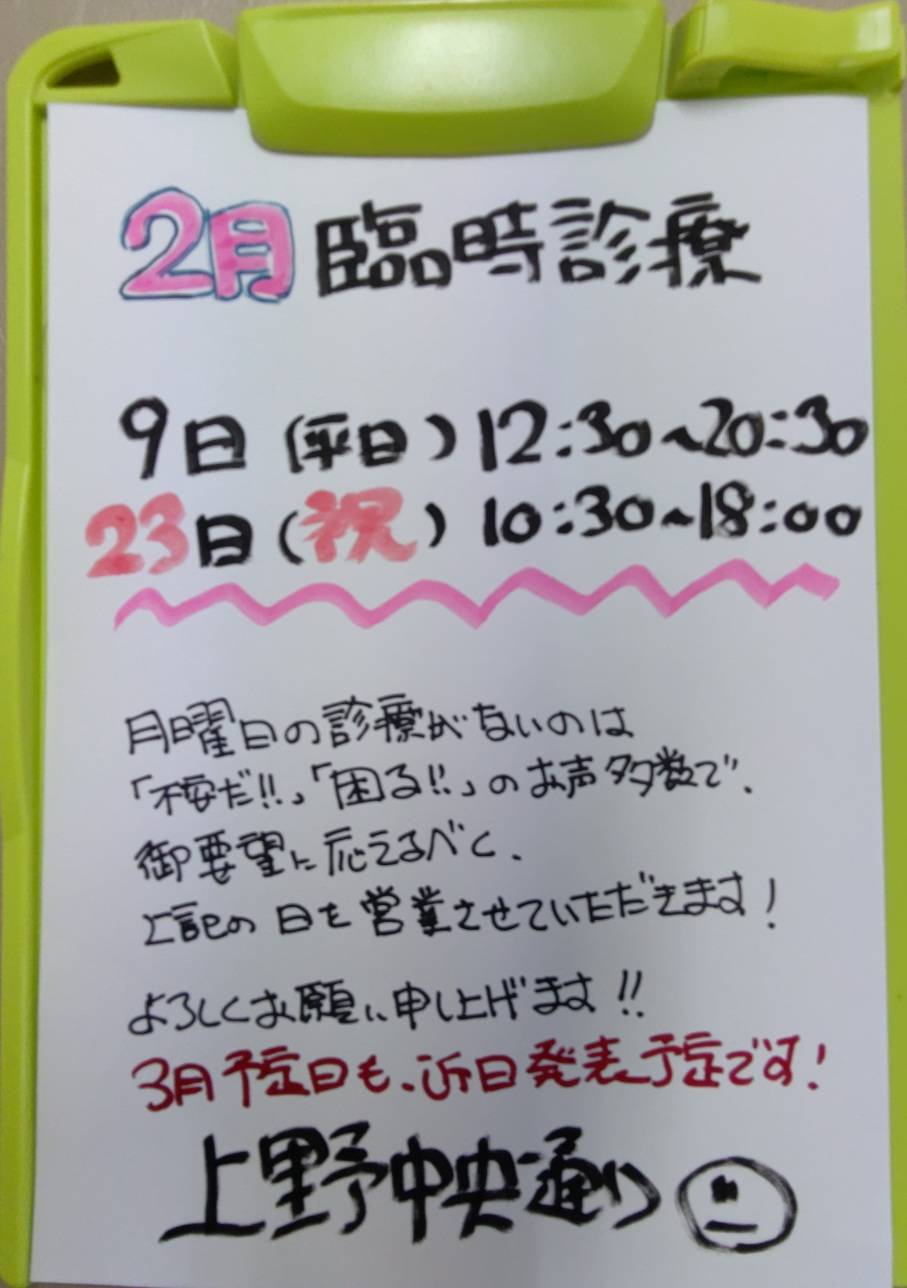 2月臨時診療
9日(平日)12:30~20:30
23日(祝)10:30~18:00
月曜日の診療がないのは
「不安だ!!」「困る!!」のお声多数で、
御要望に応えるべく、
上記の日を営業させていただきます!
よろしくお願い申し上げます!!
3月予定日も、近日発表予定です!
上野中央通り